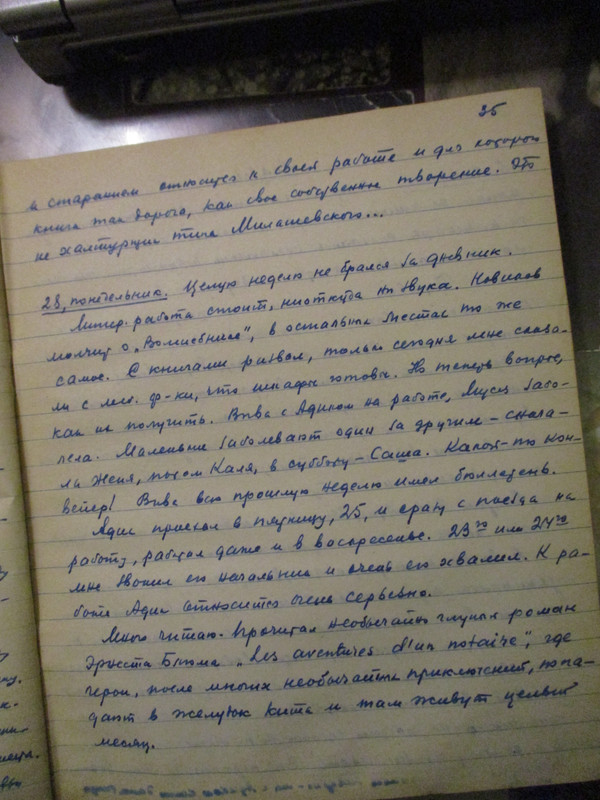 35
и старанием относится к своей работе и для которого
книга так дорога, как свое собственное творение. Это
не халтурщик типа Милашевского...
28, понедельник. Целую неделю не брался за дневник.
Литер. работа стоит, ниоткуда ни звука. Новиков
молчит о „Волшебнике", в остальных местах то же
самое. С книгами развал, только сегодня мне сказа-
ли с меб. ф-ки, что шкафы готовы. Но теперь вопрос,
как их получить. Вива с Адиком на работе, Муся забо-
лела. Маленькие заболевают один за другим – снача-
ла Женя, потом Каля, в субботу – Саша. Какой-то кон-
вейер! Вива всю прошлую неделю имел бюллетень.
Адик приехал в пятницу, 25, и сразу с поезда на
работу, работал даже и в воскресенье. 23го или 24го
мне звонил его начальник и очень его хвалил. К ра-
боте Адик относится очень серьезно.
Много читаю. Прочитал необычайно глупый роман
Эрнеста „Les aventures d'un notaire", где
герои, после многих необычайных приключений, попа-
дают в желудок кита и там живут целый
месяц.